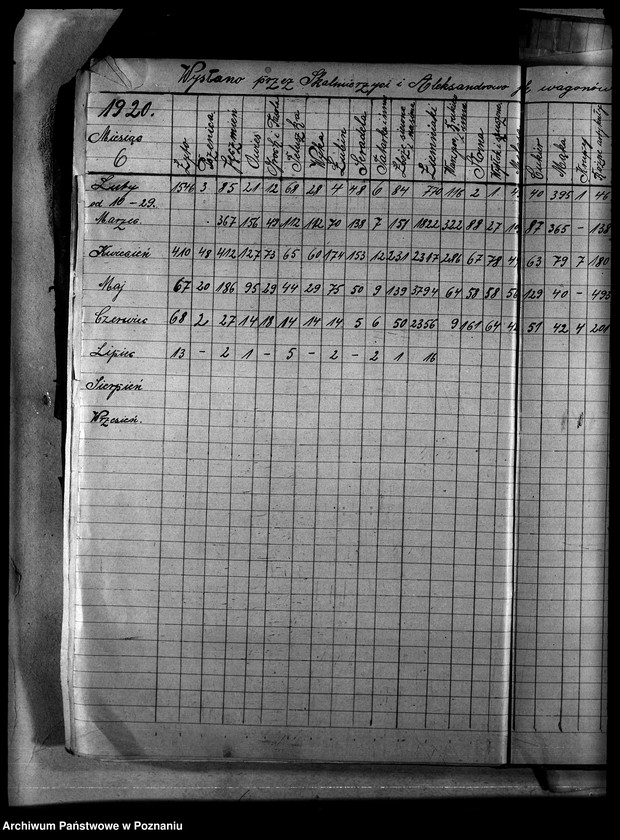 Wysłano przez Skalmierzyce i Aleksandrowo wagonów
1920.
Miesiąc
6
Żyto Pszenica Jęczmień Owies Groch Wyka Łubin Seradela Ziemniaki Słoma Cukier Mąka
Luty 1546 3 85 21 12 68 28 4 48 6 84 770 116 2 1 40 395 1 46
od 10-29.
Marzec - 367 156 49 112 182 70 138 7 151 1822 322 88 27 87 365 - 138
Kwiecień 410 48 412 127 73 65 60 174 153 12 231 2317 286 67 78 63 79 7 180
Maj 67 20 186 95 29 44 29 75 50 9 139 3794 64 58 58 56 129 40 - 495
Czerwiec 68 2 27 14 18 14 14 14 5 6 50 2356 9 161 64 51 42 4 201
Lipiec 13 - 2 1 - 5 - 2 - 2 1 16
Sierpień
Wrzesień.
Archiwum Państwowe w Poznaniu